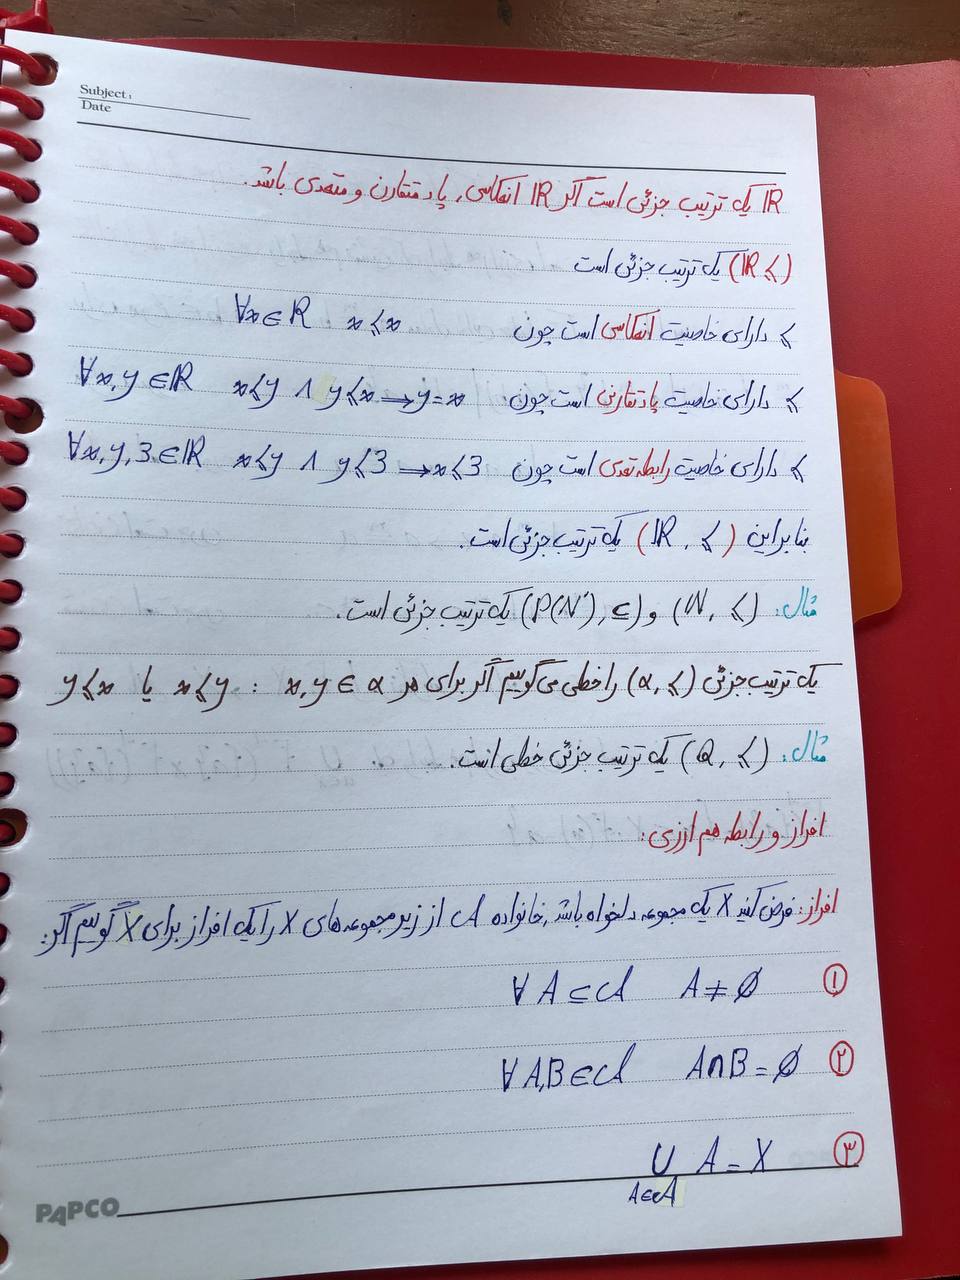 Subject:
Date
IR یک ترتیب جزئی است اگر IR انعکاسی، پادمتقارن و متعدی باشد.
(IR ⩽) یک ترتیب جزئی است
⩽ دارای خاصیت انعکاسی است چون ∀x∈IR x⩽x
⩽ دارای خاصیت پادتقارنی است چون ∀x,y∈IR x⩽y ∧ y⩽x → y=x
⩽ دارای خاصیت رابطه تعدی است چون ∀x,y,z∈IR x⩽y ∧ y⩽z → x⩽z
بنابراین (IR, ⩽) یک ترتیب جزئی است.
مثال: (N, ⩽) و (P(N), ⊆) یک ترتیب جزئی است.
یک ترتیب جزئی (α, ⩽) را خطی می گوییم اگر برای هر x,y∈α : x⩽y یا y⩽x
مثال: (Q, ⩽) یک ترتیب جزئی خطی است.
افراز و رابطه هم ارزی:
افراز: فرض کنید X یک مجموعه دلخواه باشد، خانواده A از زیرمجموعه های X را یک افراز برای X گوییم اگر:
① ∀A⊆A A≠∅
② ∀A,B∈A A∩B=∅
③ ∪ A=X
A∈A
PAPCO